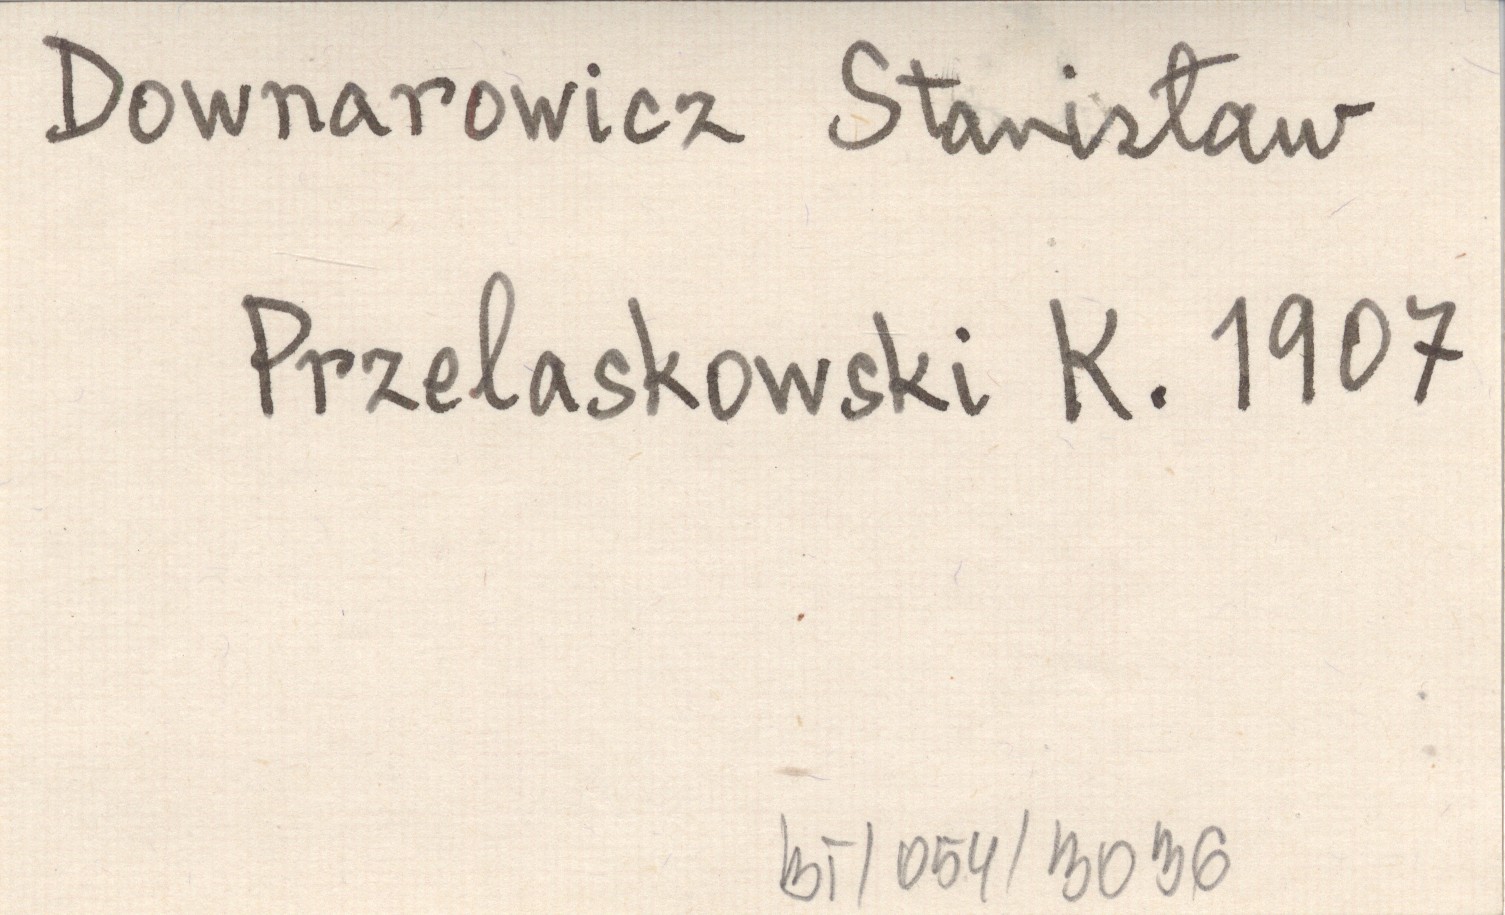 Downarowicz Stanisław
Przelaskowski K. 1907
BT/054/3036